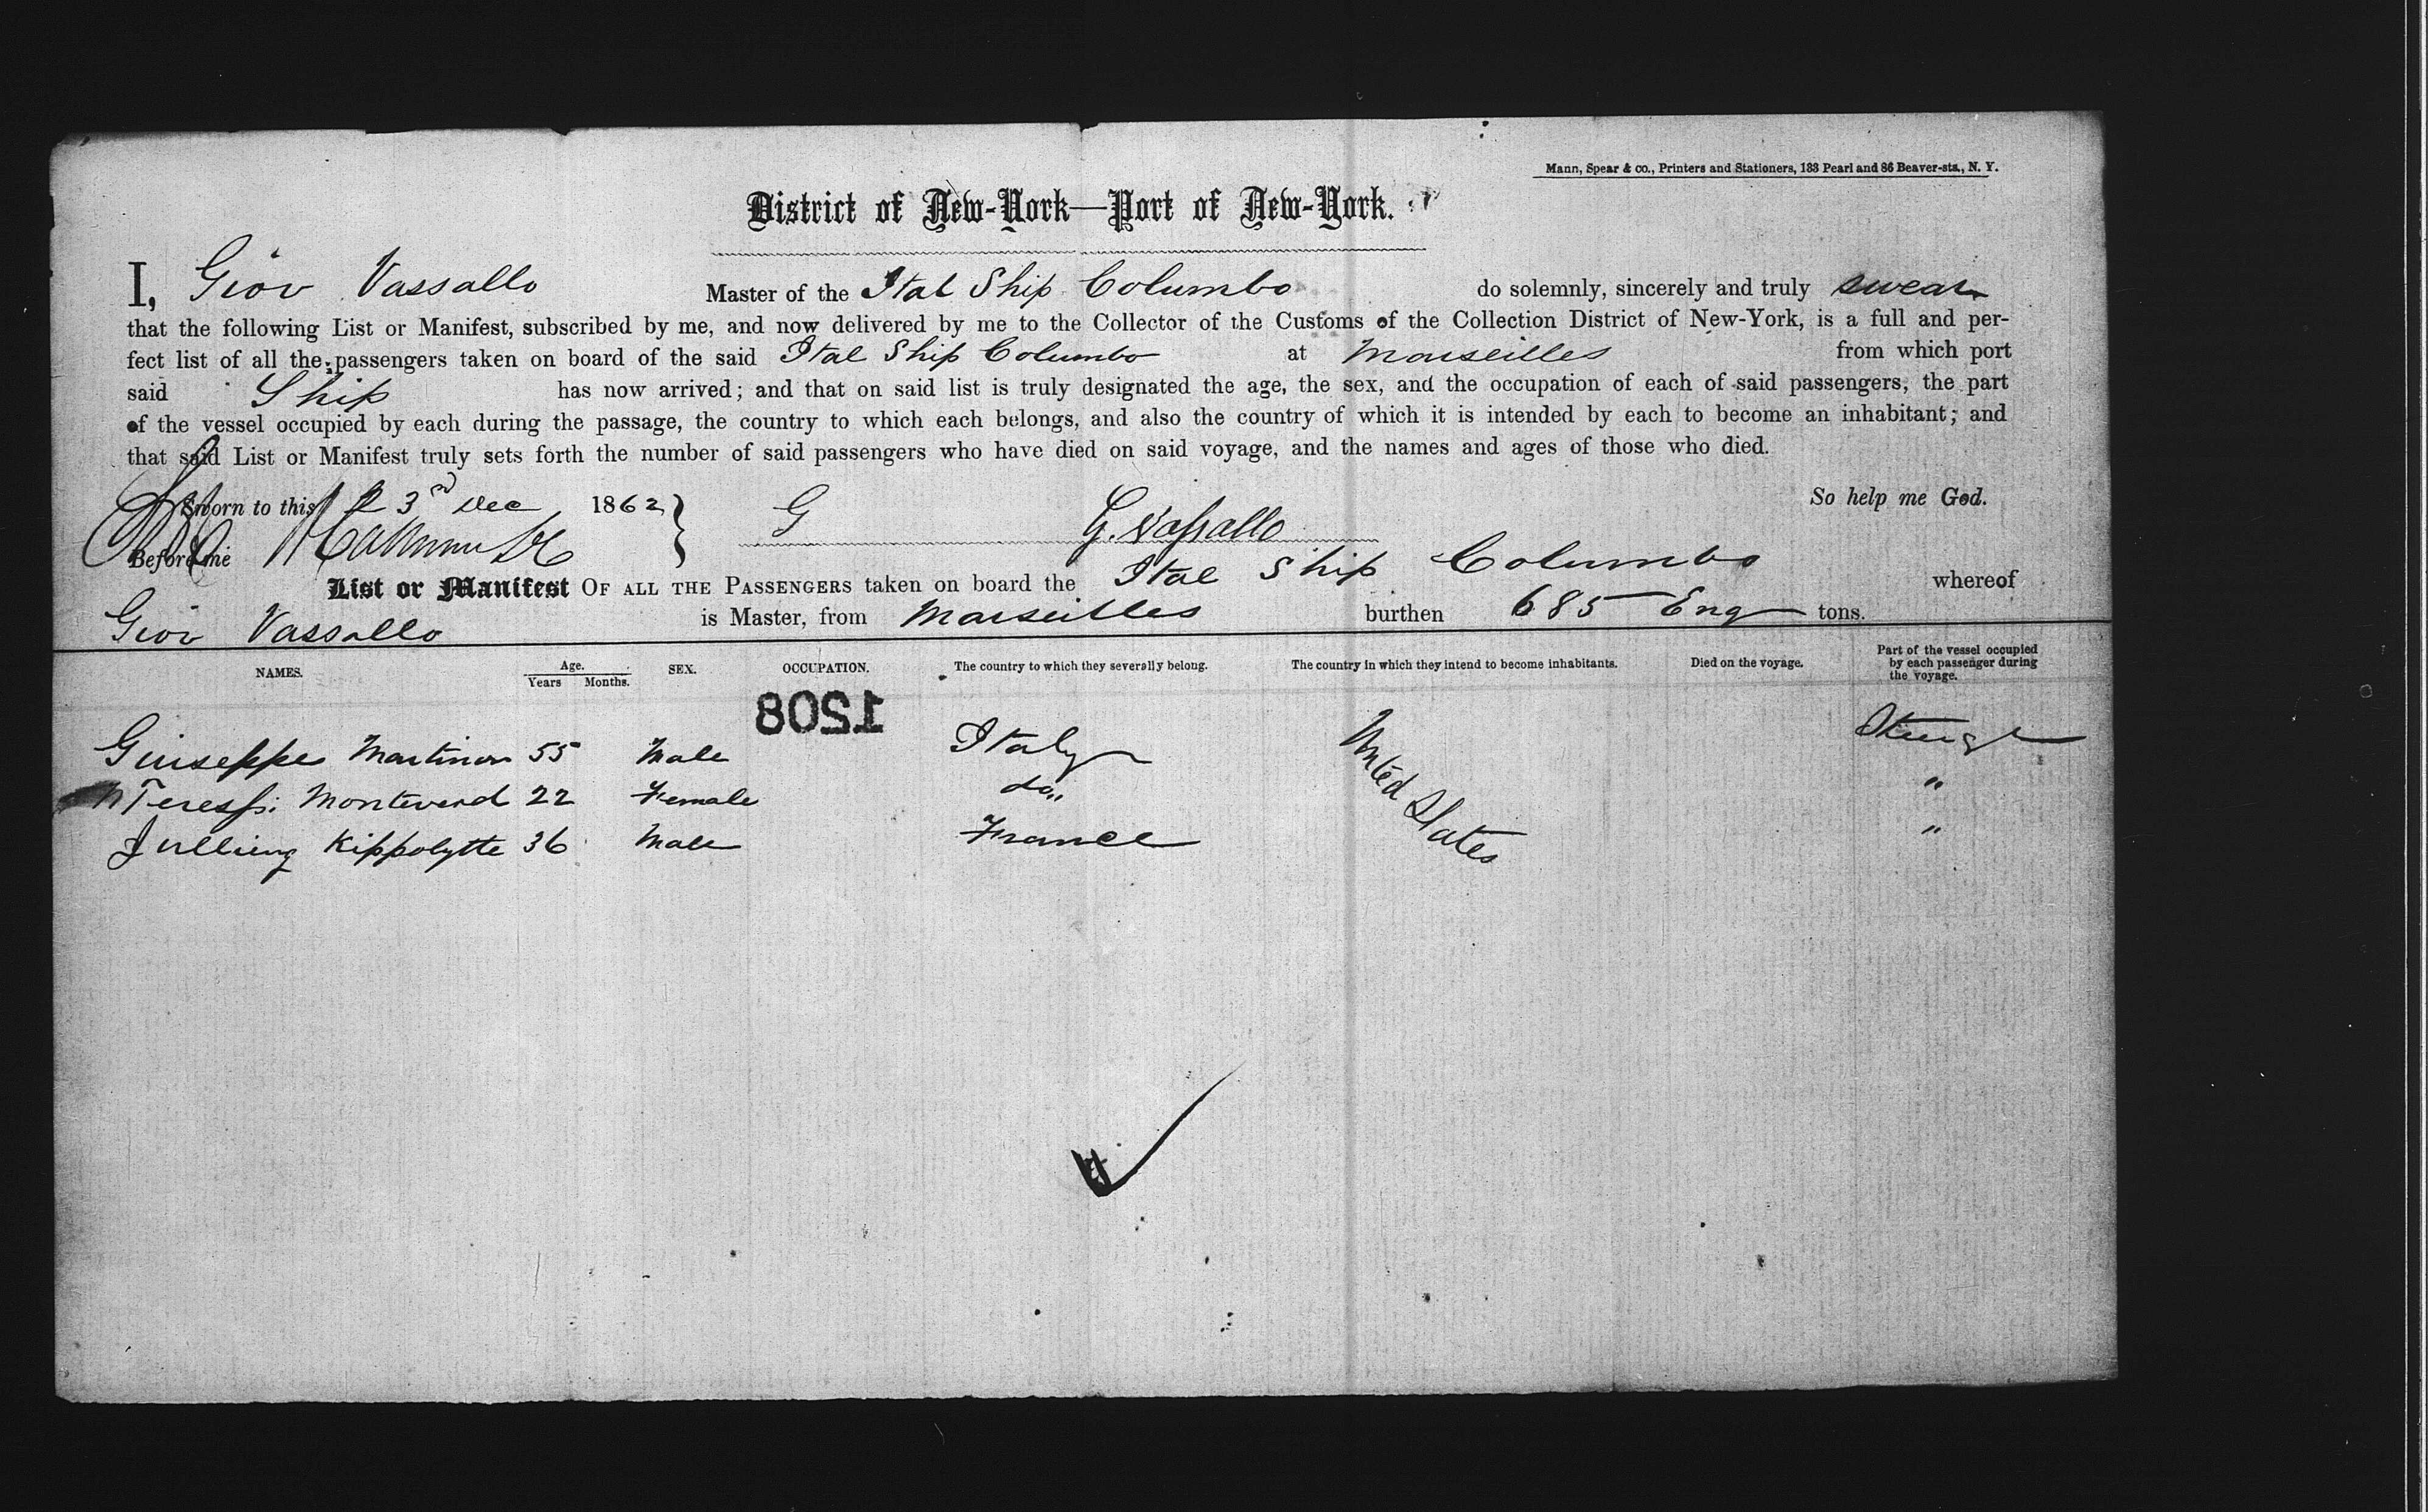 Mann, Spear & co., Printers and Stationers, 133 Pearl and 86 Beaver-sts., N. Y.
District of New-York—Port of New-York.
I, Giov Vassallo Master of the Ital Ship Columbo do solemnly, sincerely and truly swear
that the following List or Manifest, subscribed by me, and now delivered by me to the Collector of the Customs of the Collection District of New-York, is a full and per-
fect list of all the passengers taken on board of the said Ital Ship Columbo at Marseilles from which port
said Ship has now arrived; and that on said list is truly designated the age, the sex, and the occupation of each of said passengers, the part
of the vessel occupied by each during the passage, the country to which each belongs, and also the country of which it is intended by each to become an inhabitant; and
that said List or Manifest truly sets forth the number of said passengers who have died on said voyage, and the names and ages of those who died.
Sworn to this 23rd Dec 1862 } So help me God.
Before me G G. Vassallo
List or Manifest OF ALL THE PASSENGERS taken on board the Ital Ship Columbo whereof
Giov Vassallo is Master, from Marseilles burthen 685 Eng tons.
NAMES. Age. Years Months. SEX. OCCUPATION. The country to which they severally belong. The country in which they intend to become inhabitants. Died on the voyage. Part of the vessel occupied by each passenger during the voyage.
1208
Giuseppe Martinon 55 Male Italy United States
Montverd 22 Female do "
Kippolytte 36 Male France "